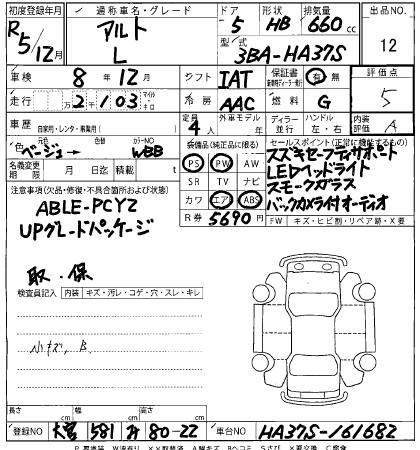 初度登録年月 通称車名・グレード ドア 形状 排気量 出品NO.
R5/12月 アルト L 5 HB 660cc 12
型式 3BA-HA37S
車検 8年12月 シフト IAT 保証書 有 無 評価点 5
走行 2千103 万 マイル キロ 冷房 AAC 燃料 G
車歴 自家用・レンタ・事業用( ) 定員 4人 外車モデル 年 ディーラー 並行 ハンドル 左・右 内装評価 A
色 ベージュ 色替 カラーNO WBB
装備品(純正品に限る)
PS PW AW
SR TV ナビ
カワ エア ABS
セールスポイント(正常に機能するもの)
スズキセーフティサポート
LEDヘッドライト
スモークガラス
バックカメラ付オーディオ
名義変更期限 月 日 積載 t
R券 5690円
FW キズ・ヒビ割・リペア跡・X要
注意事項(欠品・修復・不具合箇所および状態)
ABLE-PCY2
UPグレードパッケージ
取・保
検査員記入 内装 キズ・汚レ・コゲ・穴・スレ・キレ
小キズ、B
長さ cm 幅 cm 高さ cm
登録NO 大宮 581 み 80-22 車台NO HA37S-161682